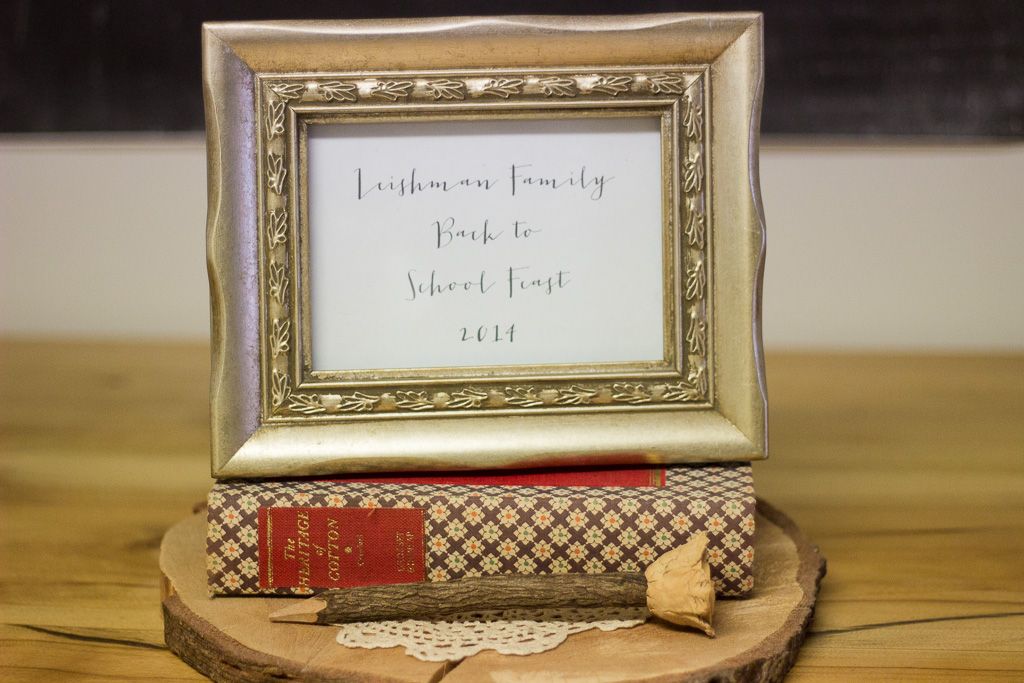 Leishman Family
Back to
School Feast
2014
The
HERITAGE
of
COTTON